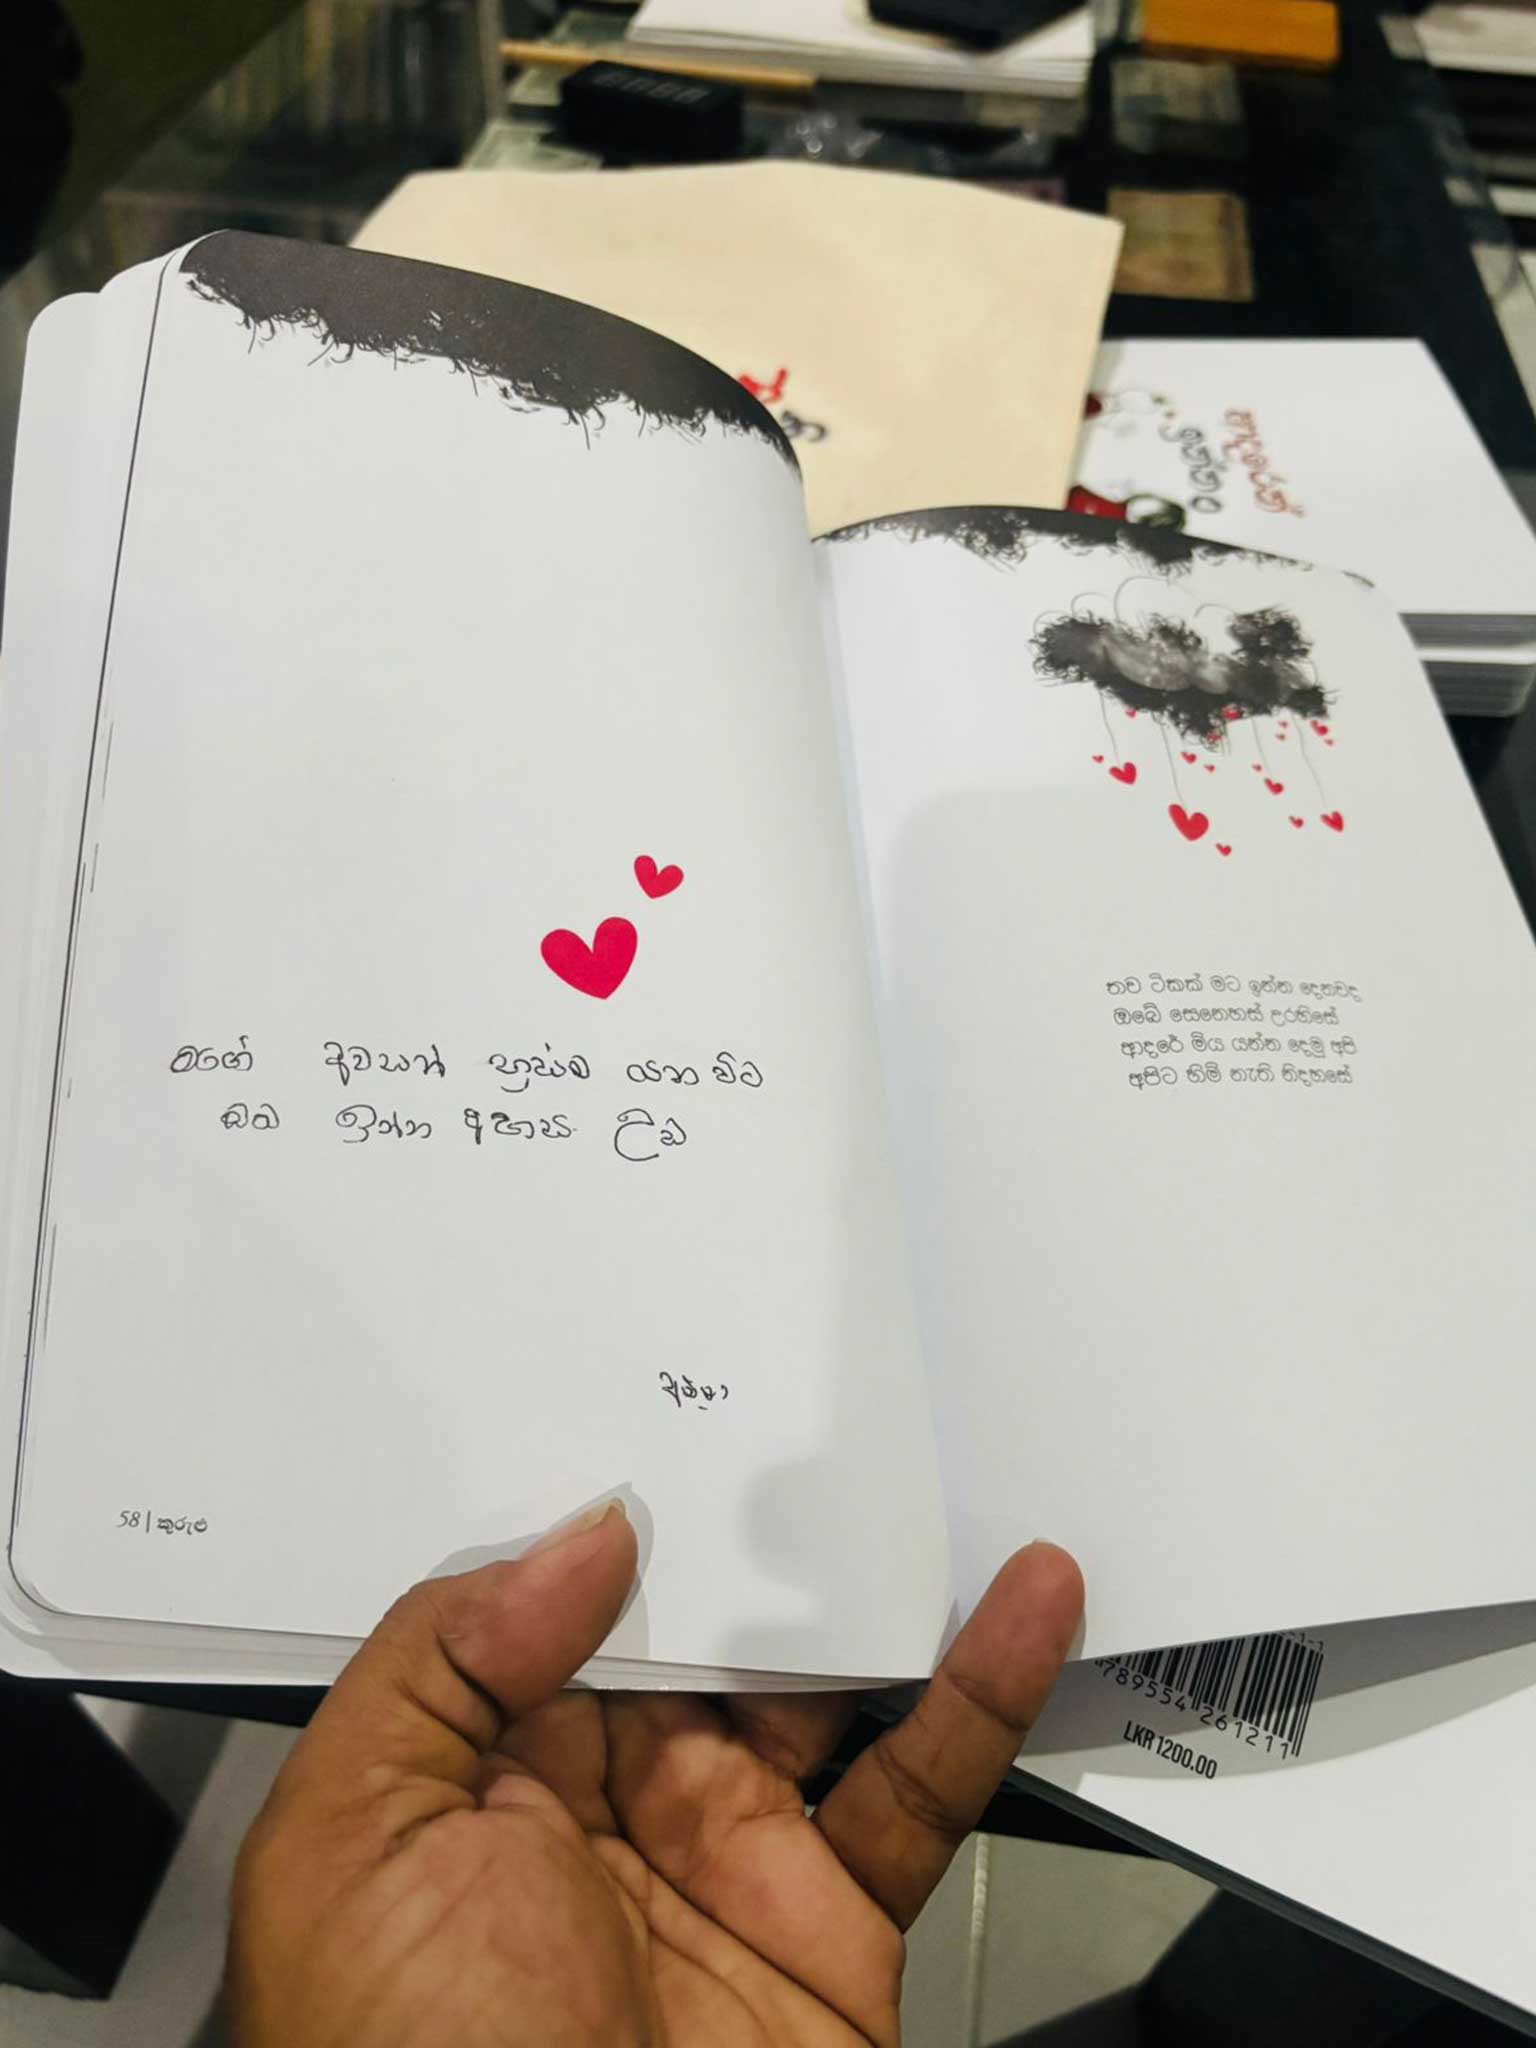 මගේ අවසන් හුස්ම යන විට
ඔබ ඉන්න අහස උඩ
අම්මා
58 | කුරුළු
තව ටිකක් මට ඉන්න දෙනවද
ඔබේ සෙනෙහස් උරහිසේ
ආදරේ මිය යන්න දෙමු අපි
අපිට හිමි නැති නිදහසේ
ආදරෙන්
789554 261211
LKR1200.00